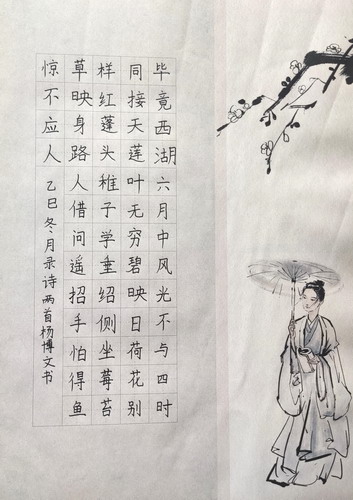 毕竟西湖六月中风光不与四时
同接天莲叶无穷碧映日荷花别
样红蓬头稚子学垂绍侧坐莓苔
草映身路人借问遥招手怕得鱼
惊不应人 乙巳冬月录诗两首杨博文书